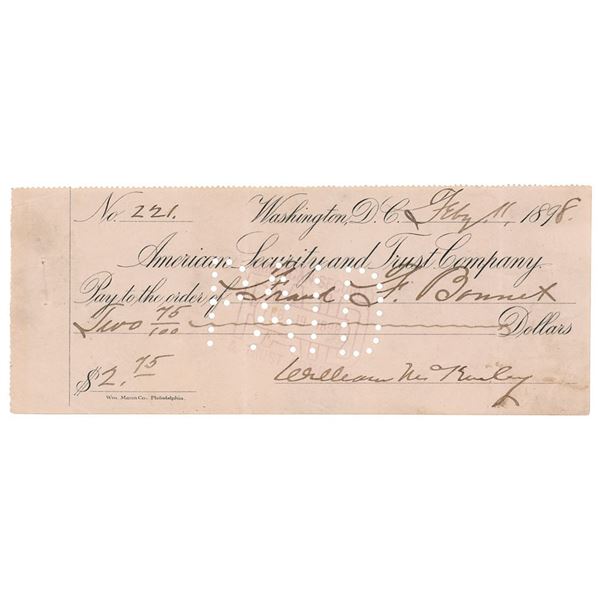 No. 221. Washington, D.C. Feby 11, 1898.
American Security and Trust Company.
Pay to the order of Frank F. Bonnet
Two 75/100 Dollars
$2.75 William McKinley
Wm. Mann Co. Philadelphia.
PAID